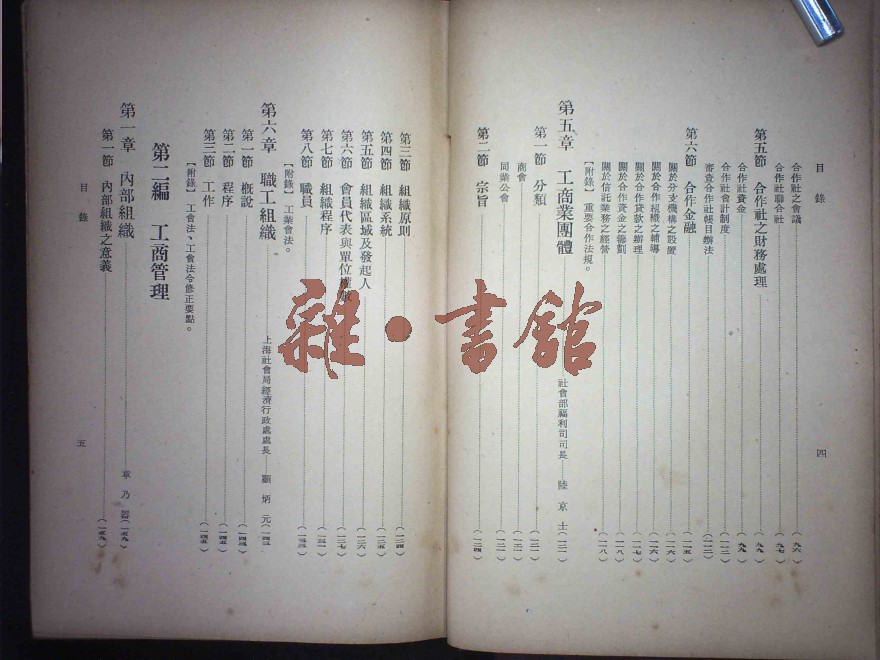 目錄
四
合作社之會議(九六)
合作社聯合社(九七)
第五節 合作社之財務處理(九九)
合作社資金(九九)
合作社會計制度
審查合作社帳目辦法
第六節 合作金融(一一五)
關於分支機構之設置(一一六)
關於合作組織之輔導(一一六)
關於合作貸款之辦理(一一七)
關於合作資金之籌劃(一一八)
關於信託業務之經營(一一八)
【附錄】重要合作法規。
第五章 工商業團體 社會部福利司司長 陸京士
第一節 分類
商會
同業公會
第二節 宗旨(一二四)
第三節 組織原則(一二四)
第四節 組織系統(一二五)
第五節 組織區域及發起人(一二六)
第六節 會員代表與單位權數(一二七)
第七節 組織程序(一三一)
第八節 職員
【附錄】工業會法。
第六章 職工組織 上海社會局經濟行政處處長 顧炳元(一四三)
第一節 概說(一四三)
第二節 程序(一四五)
第三節 工作(一四五)
【附錄】工會法、工會法令修正要點。
第二編 工商管理
第一章 內部組織 章乃器(一五九)
第一節 內部組織之意義(一五九)
目錄
五
雜·書館